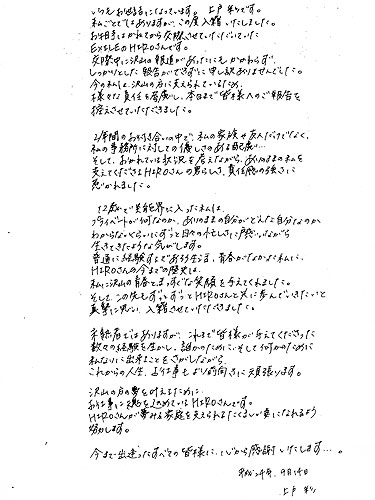 いつもお世話になっています。上戸彩です。
私ごとではありますが、この度入籍いたしました。
お相手はかねてから交際させていただいていた
EXILEのHIROさんです。
交際中に沢山の報道があったにもかかわらず、
しっかりとした報告ができずに申し訳ありませんでした。
今の私は、沢山の方に支えられているため、
様々な責任を考慮し、本日まで皆様へのご報告を
控えさせていただきました。
2年間のお付き合いの中で、私の家族や友人だけでなく、
私の事務所に対しての優しさのある配慮…
そして、おかれている状況を考えながら、ありのままの私を
支えてくださるHIROさんの男らしさ、責任感の強さに
惹かれました。
12歳で芸能界に入った私は、
プライベートが何なのか、ありのままの自分がどんな自分なのか
わからないくらいにずっと日々の忙しさに戸惑いながら
生きてきたような気がします。
普通に経験するであろう生活、青春がなかった私に、
HIROさんの今までの歴史は、
私に沢山の青春と、まっすぐな笑顔を与えてくれました。
そして、この先もずっとずっとHIROさんと共に歩んでいきたいと
真摯に思い、入籍させていただきました。
未熟者ではありますが、これまで皆様が与えてくださった
数々の経験を生かし、誰かのために、そして何かのために
私なりに出来ることをさがしながら、
これからの人生、お仕事もより前向きに頑張ります。
沢山の方の夢を叶えるために、
お仕事に魂を込めているHIROさん。
HIROさんが夢みる家庭を支えられるたくましい妻になれるよう
努力します。
今まで出逢ったすべての皆様に、心から感謝いたします…。
平成二十四年、9月14日
上戸 彩